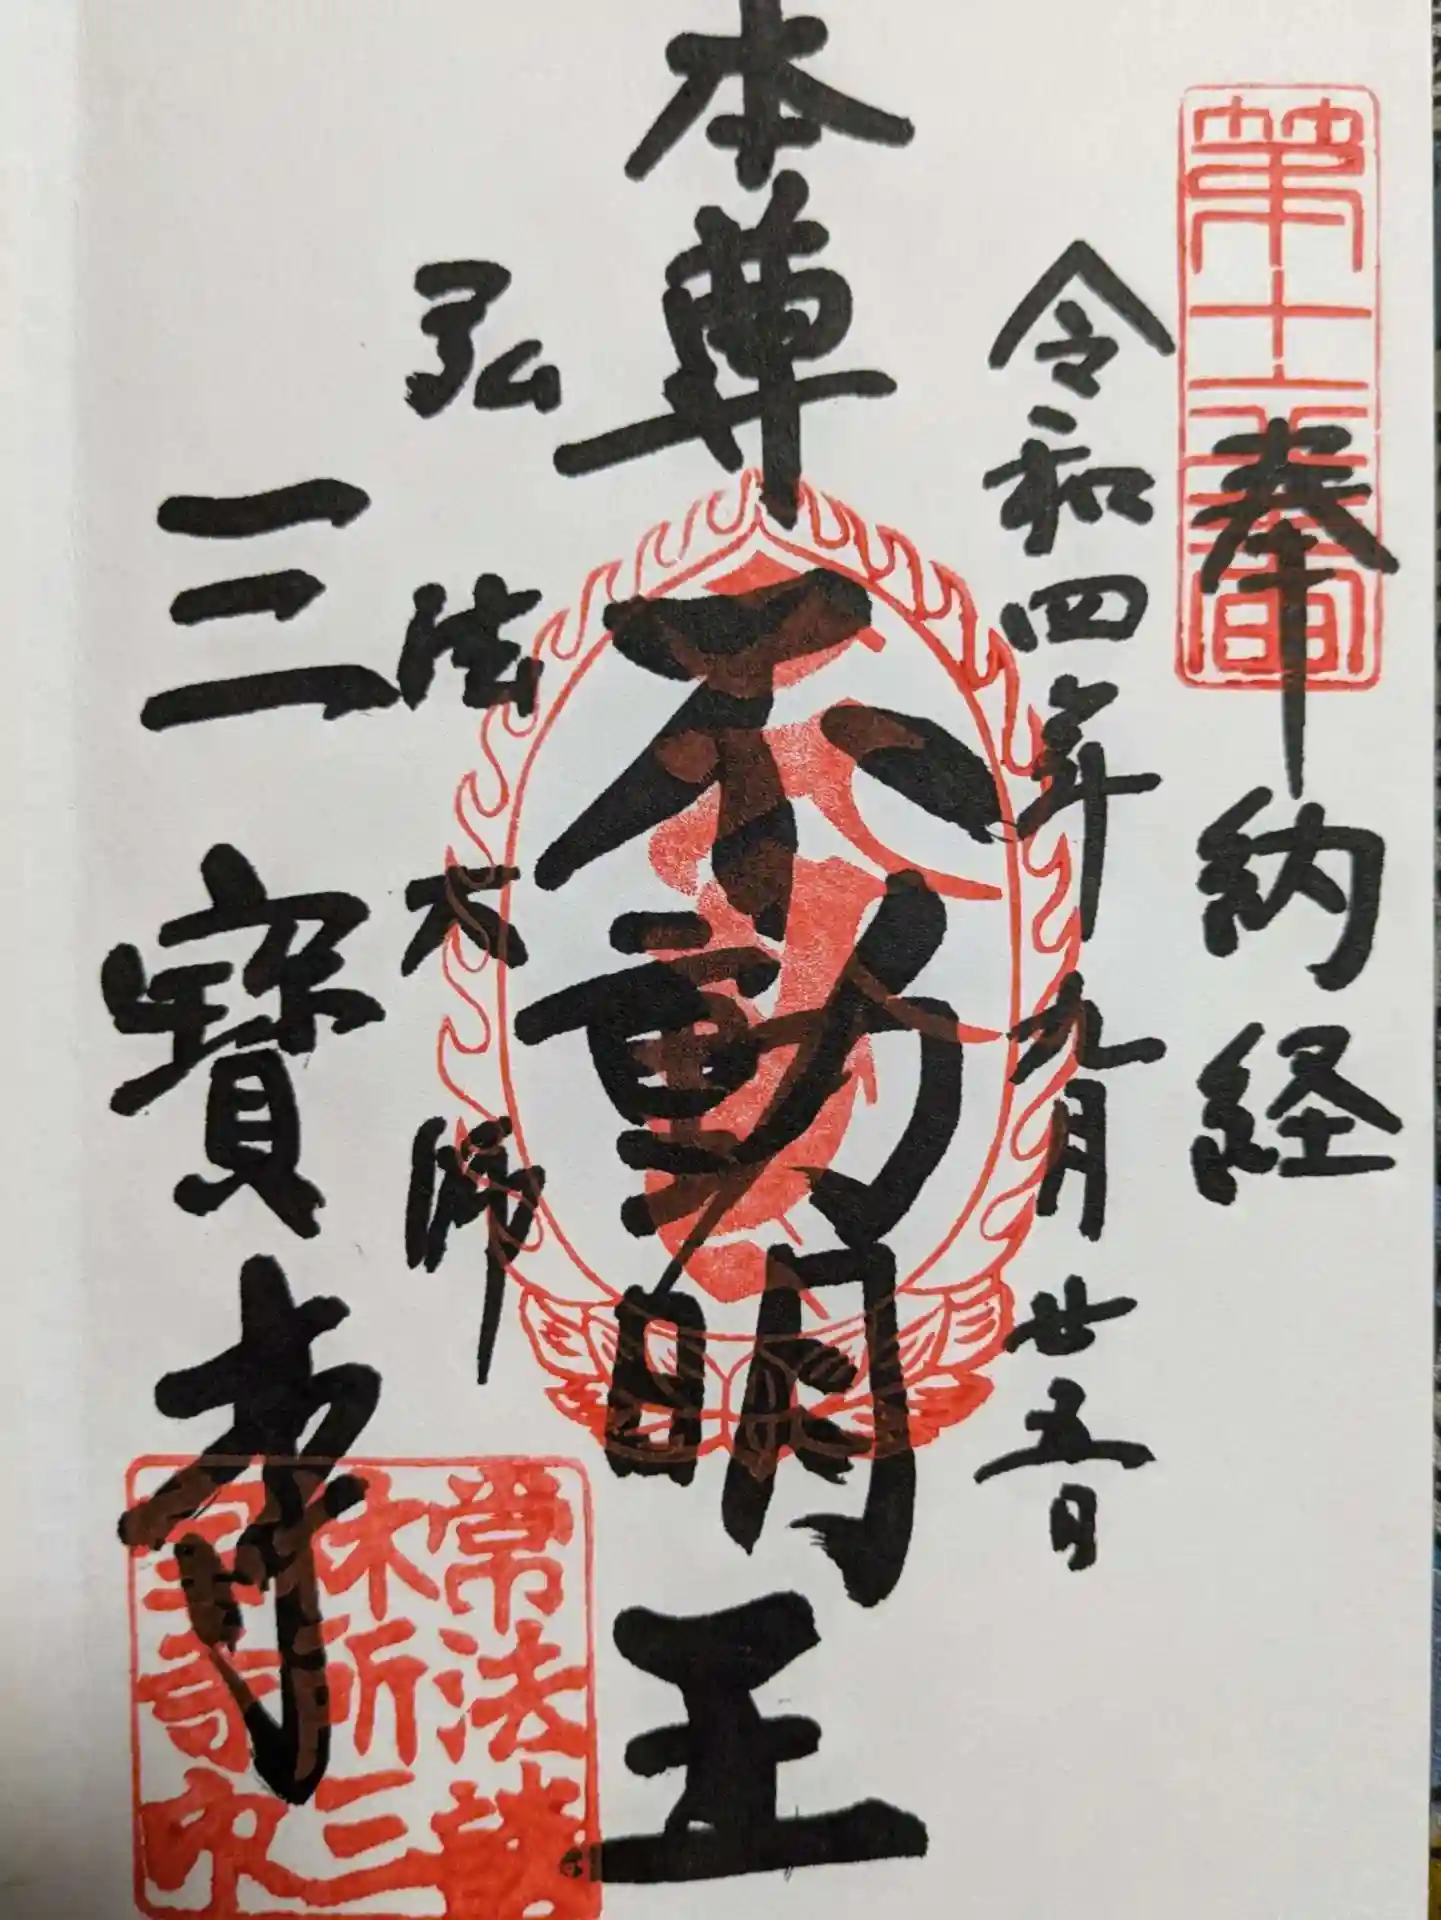 奉納経
令和四年九月廿五日
本尊
不動明王
弘法大師
三寳寺
常法談
林所三
宝寺印